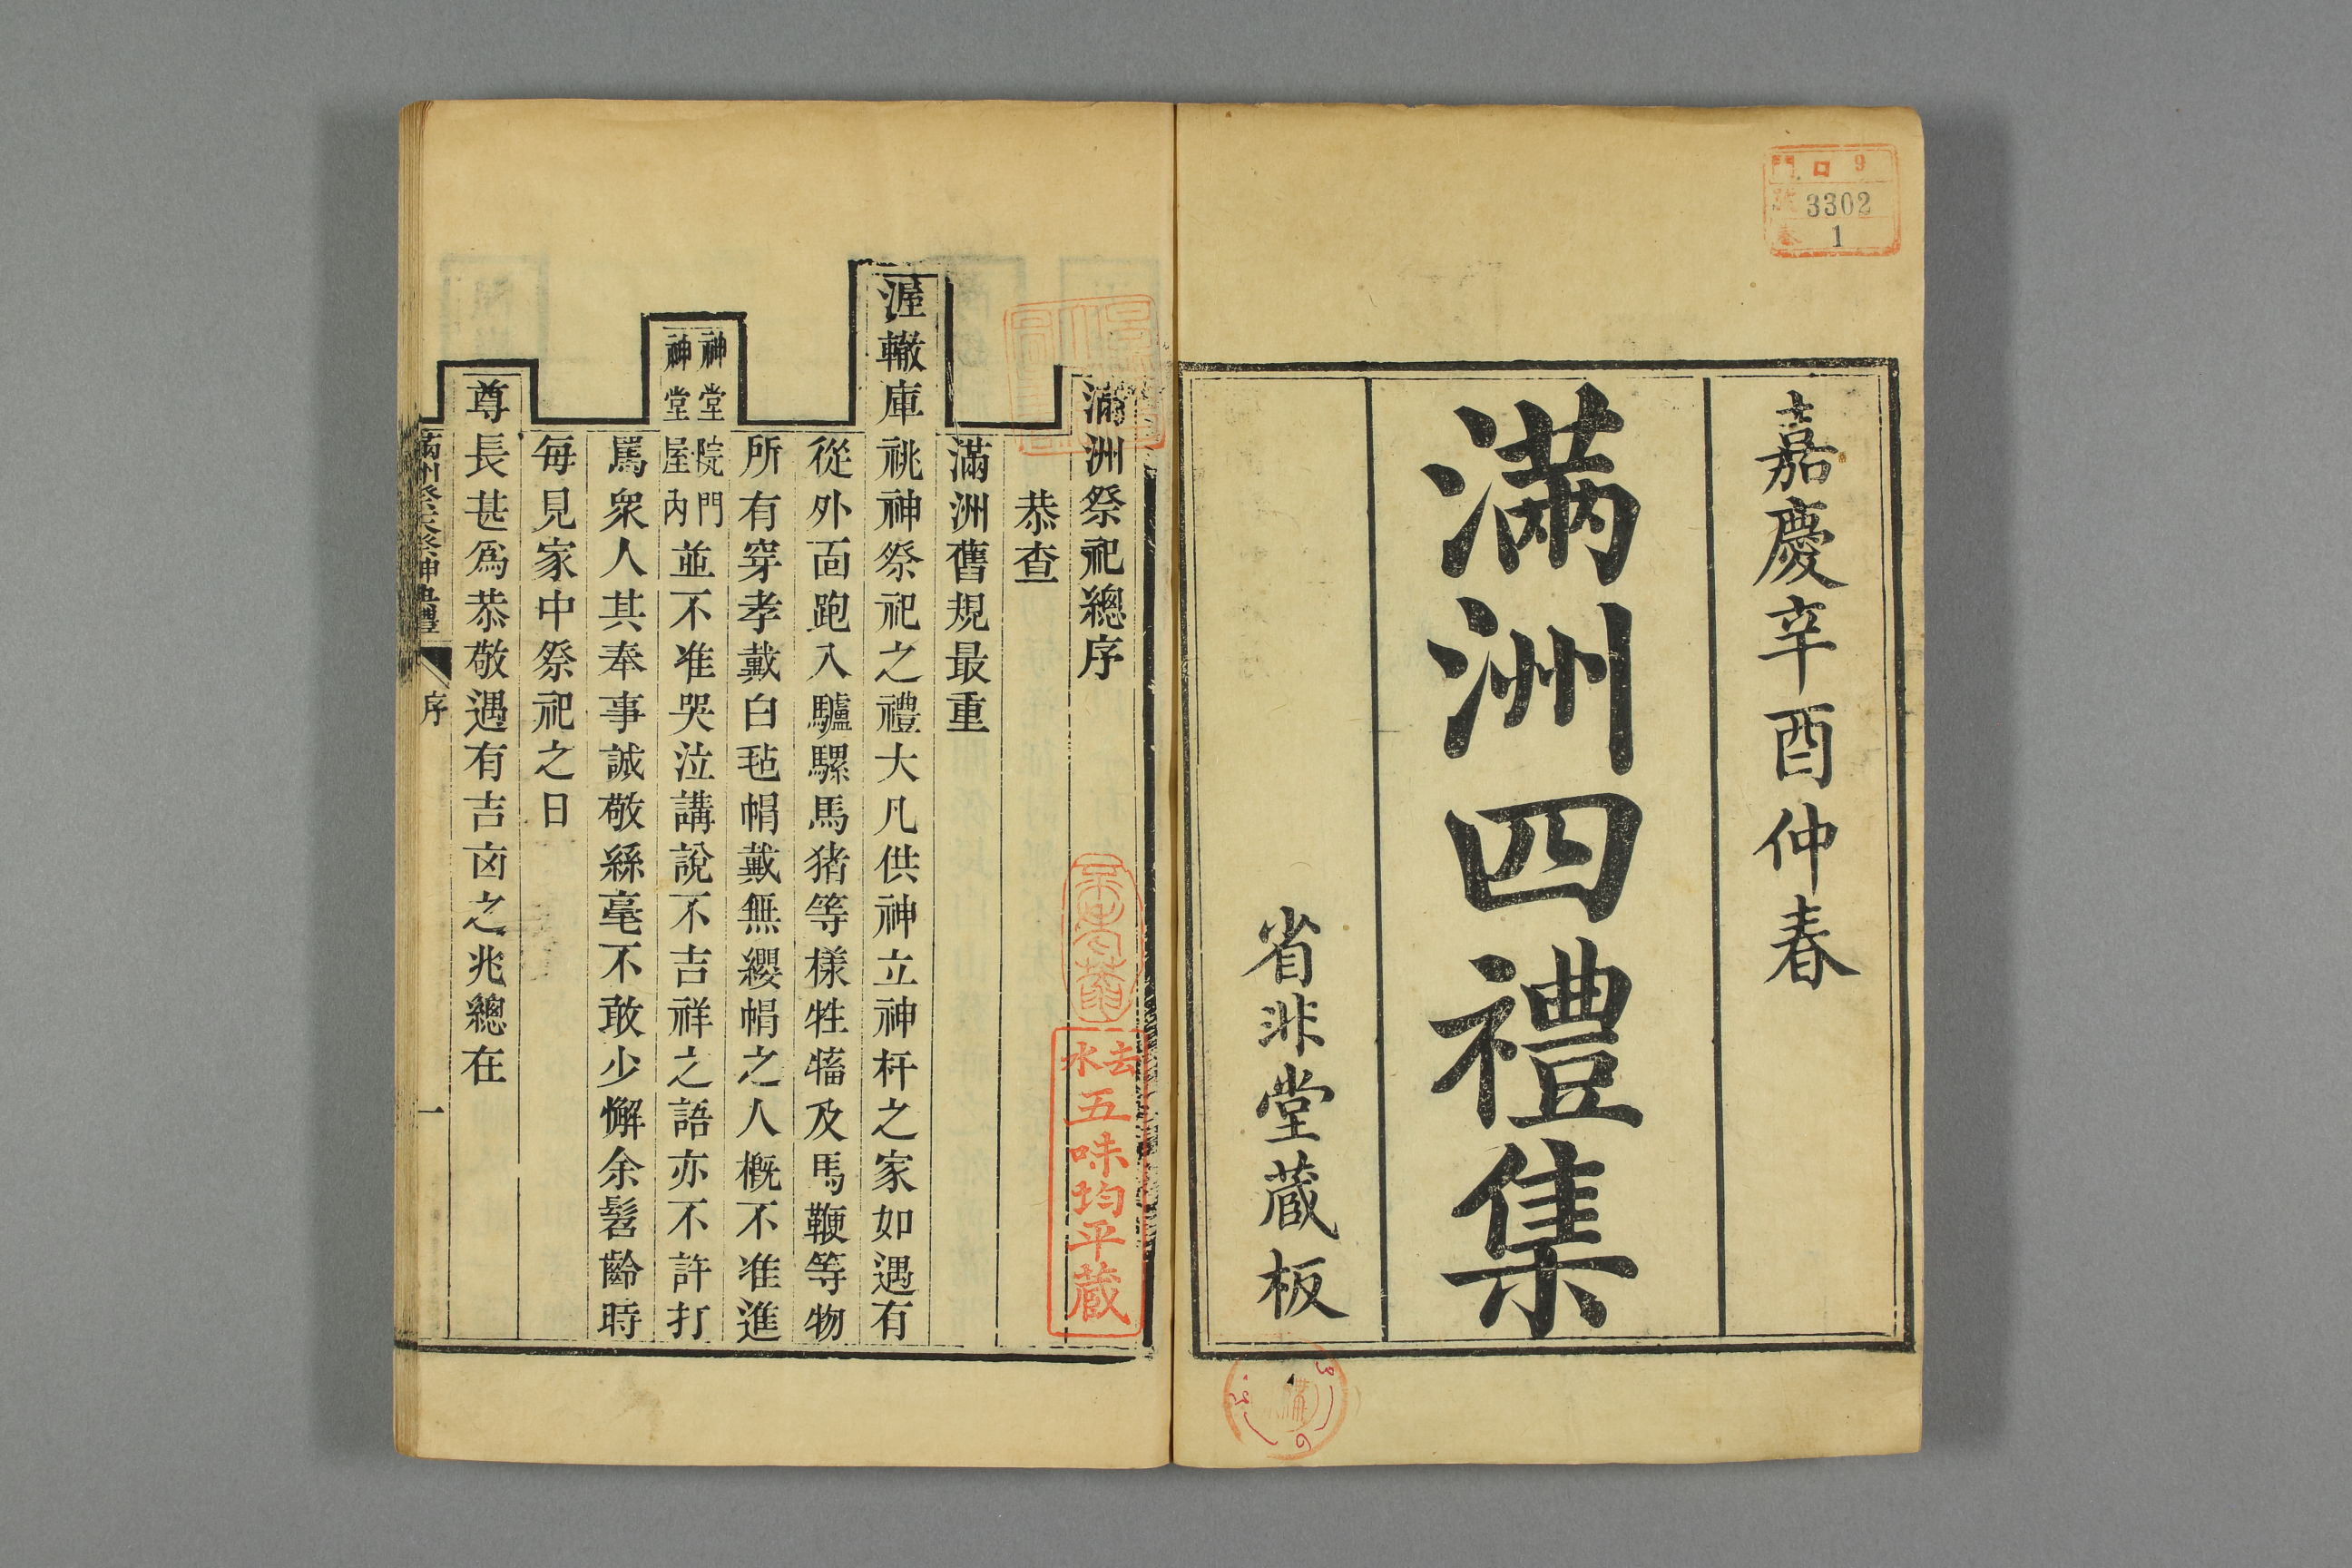 嘉慶辛酉仲春
滿洲四禮集
省非堂蔵板
門 口 9
號 3302
卷 1
滿洲祭祀總序
恭查
滿洲舊規最重
渥轍庫祧神祭祀之禮大凡供神立神杆之家如遇有
從外面跑入驢騾馬猪等樣牲犗及馬鞭等物
所有穿孝戴白毡帽戴無纓帽之人概不准進
神堂院門
神堂屋內並不准哭泣講說不吉祥之語亦不許打
罵衆人其奉事誠敬絲毫不敢少懈余髫齡時
每見家中祭祀之日
尊長甚爲恭敬遇有吉凶之兆總在
序
一
去水
五味均平蔵